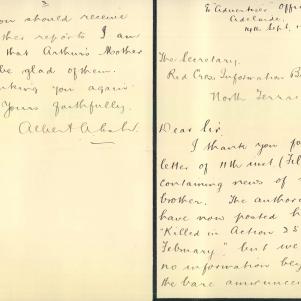 2
you should receive
ther reports I am
that Arthur's Mother
be glad of them.
king you again
Yours faithfully.
To Advertiser Offi
Adelaide,
Sept.
The Secretary.
Red Cross Information B
North Terra
Dear Sir,
I thank you fo
letter of 11th inst (
containing news of
brother. The author
have now posted h
"Killed in Action 25
February", but we
no information bey
the bare announce